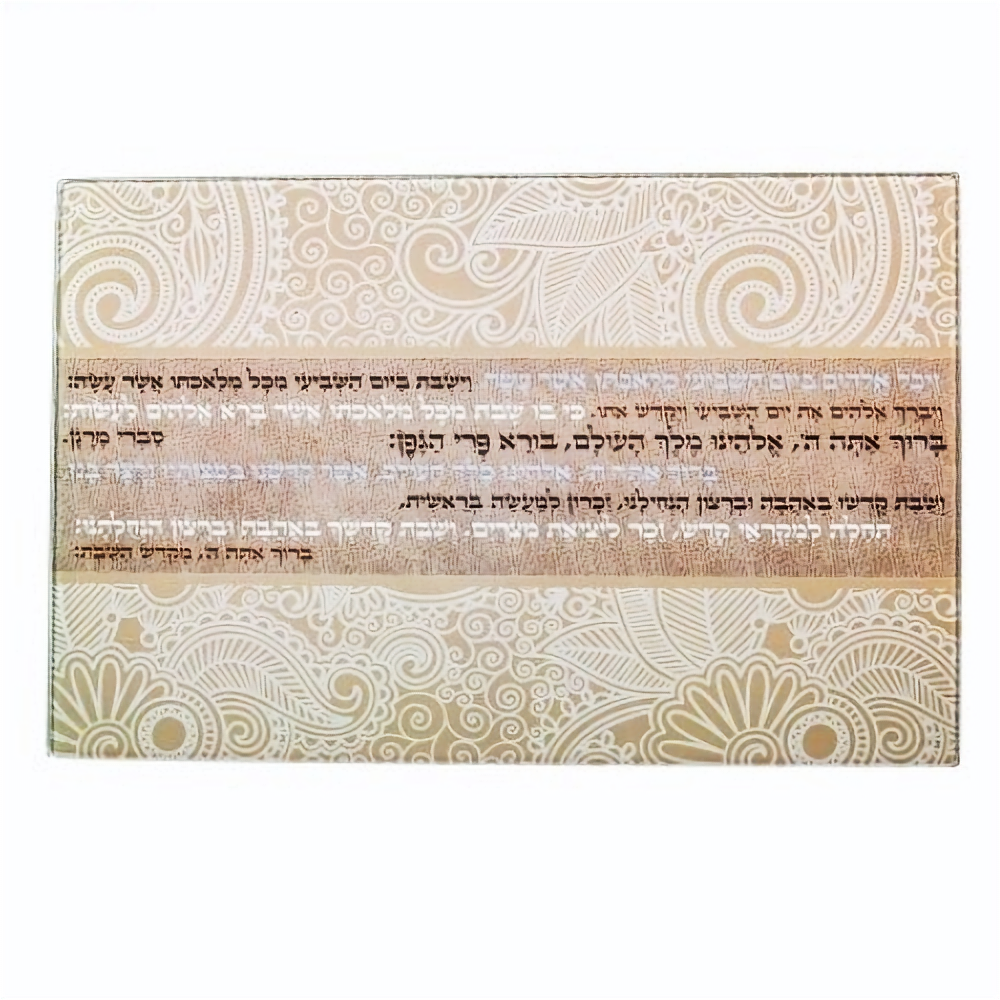 וַיְכַל אֱלֹהִים בַּיּוֹם הַשְּׁבִיעִי מְלַאכְתּוֹ אֲשֶׁר עָשָׂה וַיִּשְׁבֹּת בַּיּוֹם הַשְּׁבִיעִי מִכָּל מְלַאכְתּוֹ אֲשֶׁר עָשָׂה:
וַיְבָרֶךְ אֱלֹהִים אֶת יוֹם הַשְּׁבִיעִי וַיְקַדֵּשׁ אֹתוֹ. כִּי בוֹ שָׁבַת מִכָּל מְלַאכְתּוֹ אֲשֶׁר בָּרָא אֱלֹהִים לַעֲשׂוֹת:
בָּרוּךְ אַתָּה ה', אֱלֹהֵינוּ מֶלֶךְ הָעוֹלָם, בּוֹרֵא פְּרִי הַגֶּפֶן: סַבְרִי מָרָנָן.
בָּרוּךְ אַתָּה ה', אֱלֹהֵינוּ מֶלֶךְ הָעוֹלָם, אֲשֶׁר קִדְּשָׁנוּ בְּמִצְוֹתָיו וְרָצָה בָנוּ,
וְשַׁבַּת קָדְשׁוֹ בְּאַהֲבָה וּבְרָצוֹן הִנְחִילָנוּ, זִכָּרוֹן לְמַעֲשֵׂה בְרֵאשִׁית,
תְּחִלָּה לְמִקְרָאֵי קֹדֶשׁ, זֵכֶר לִיצִיאַת מִצְרָיִם. וְשַׁבַּת קָדְשְׁךָ בְּאַהֲבָה וּבְרָצוֹן הִנְחַלְתָּנוּ:
בָּרוּךְ אַתָּה ה', מְקַדֵּשׁ הַשַּׁבָּת: